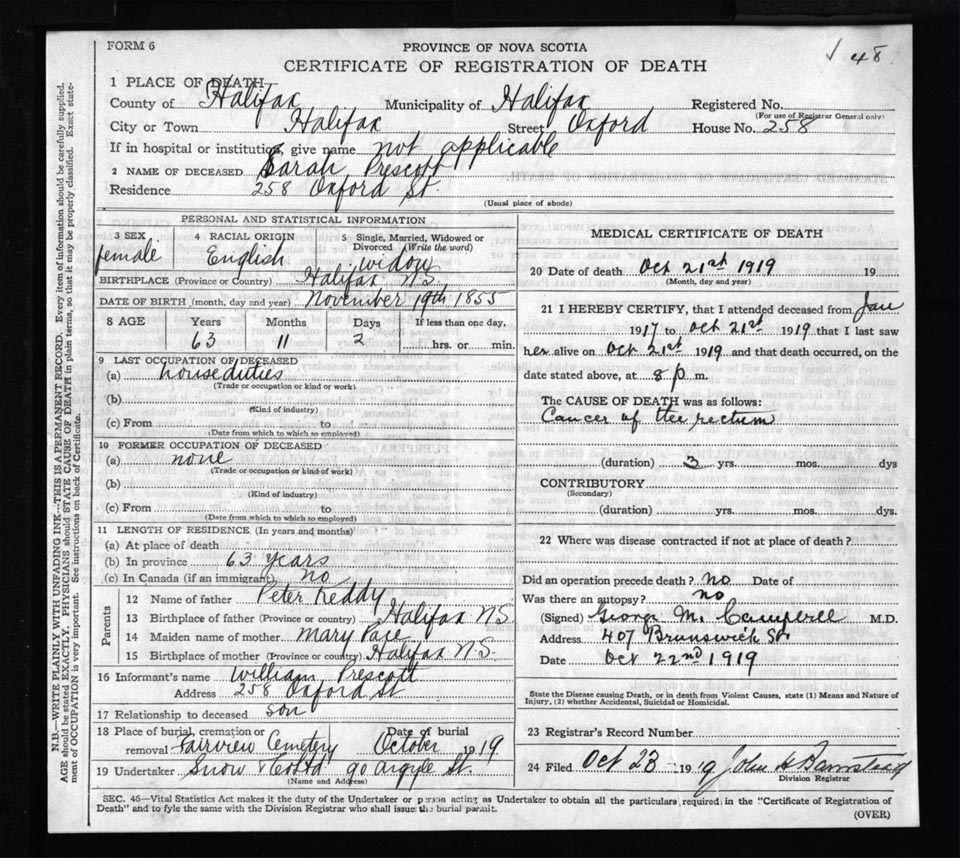 FORM 6
PROVINCE OF NOVA SCOTIA
√ 48
CERTIFICATE OF REGISTRATION OF DEATH
1 PLACE OF DEATH
County of Halifax Municipality of Halifax Registered No.
(For use of Registrar General only)
City or Town Halifax Street Oxford House No. 258
If in hospital or institution, give name not applicable
2 NAME OF DECEASED Sarah Prescott
Residence 258 Oxford St.
(Usual place of abode)
PERSONAL AND STATISTICAL INFORMATION
3 SEX female
4 RACIAL ORIGIN English
5 Single, Married, Widowed or Divorced (Write the word) widow
BIRTHPLACE (Province or Country) Halifax N.S.
DATE OF BIRTH (month, day and year) November 19th 1855
8 AGE Years Months Days If less than one day,
63 11 2 hrs. or min.
9 LAST OCCUPATION OF DECEASED
(a) house duties
(Trade or occupation or kind of work)
(b)
(Kind of industry)
(c) From to
(Date from which to which so employed)
10 FORMER OCCUPATION OF DECEASED
(a) none
(Trade or occupation or kind of work)
(b)
(Kind of industry)
(c) From to
(Date from which to which so employed)
11 LENGTH OF RESIDENCE (In years and months)
(a) At place of death
(b) In province 63 years
(c) In Canada (if an immigrant) no
Parents
12 Name of father Peter Reddy
13 Birthplace of father (Province or country) Halifax N.S.
14 Maiden name of mother Mary Pace
15 Birthplace of mother (Province or country) Halifax N.S.
16 Informant's name William Prescott
Address 258 Oxford St
17 Relationship to deceased son
18 Place of burial, cremation or Date of burial
removal Fairview Cemetery October 1919
19 Undertaker Snow & Co Ltd 90 Argyle St.
(Name and Address)
MEDICAL CERTIFICATE OF DEATH
20 Date of death Oct 21st 1919 19
(Month, day and year)
21 I HEREBY CERTIFY, that I attended deceased from Jan
1917 to Oct 21st 1919 that I last saw
her alive on Oct 21st 1919 and that death occurred, on the
date stated above, at 8 p m.
The CAUSE OF DEATH was as follows:
Cancer of the rectum
(duration) 3 yrs. mos. dys
CONTRIBUTORY
(Secondary)
(duration) yrs. mos. dys.
22 Where was disease contracted if not at place of death?
Did an operation precede death? no Date of
Was there an autopsy? no
(Signed) George M. Campbell M.D.
Address 407 Brunswick St
Date Oct 22nd 1919
State the Disease causing Death, or in death from Violent Causes, state (1) Means and Nature of
Injury, (2) whether Accidental, Suicidal or Homicidal.
23 Registrar's Record Number
24 Filed Oct 23 1919 John H Barnstead
Division Registrar
SEC. 45—Vital Statistics Act makes it the duty of the Undertaker or person acting as Undertaker to obtain all the particulars required in the "Certificate of Registration of
Death" and to fyle the same with the Division Registrar who shall issue the burial permit.
(OVER)
N.B.—WRITE PLAINLY WITH UNFADING INK—THIS IS A PERMANENT RECORD. Every item of information should be carefully supplied.
AGE should be stated EXACTLY. PHYSICIANS should STATE CAUSE OF DEATH in plain terms, so that it may be properly classified. Exact state-
ment of OCCUPATION is very important. See instructions on back of Certificate.